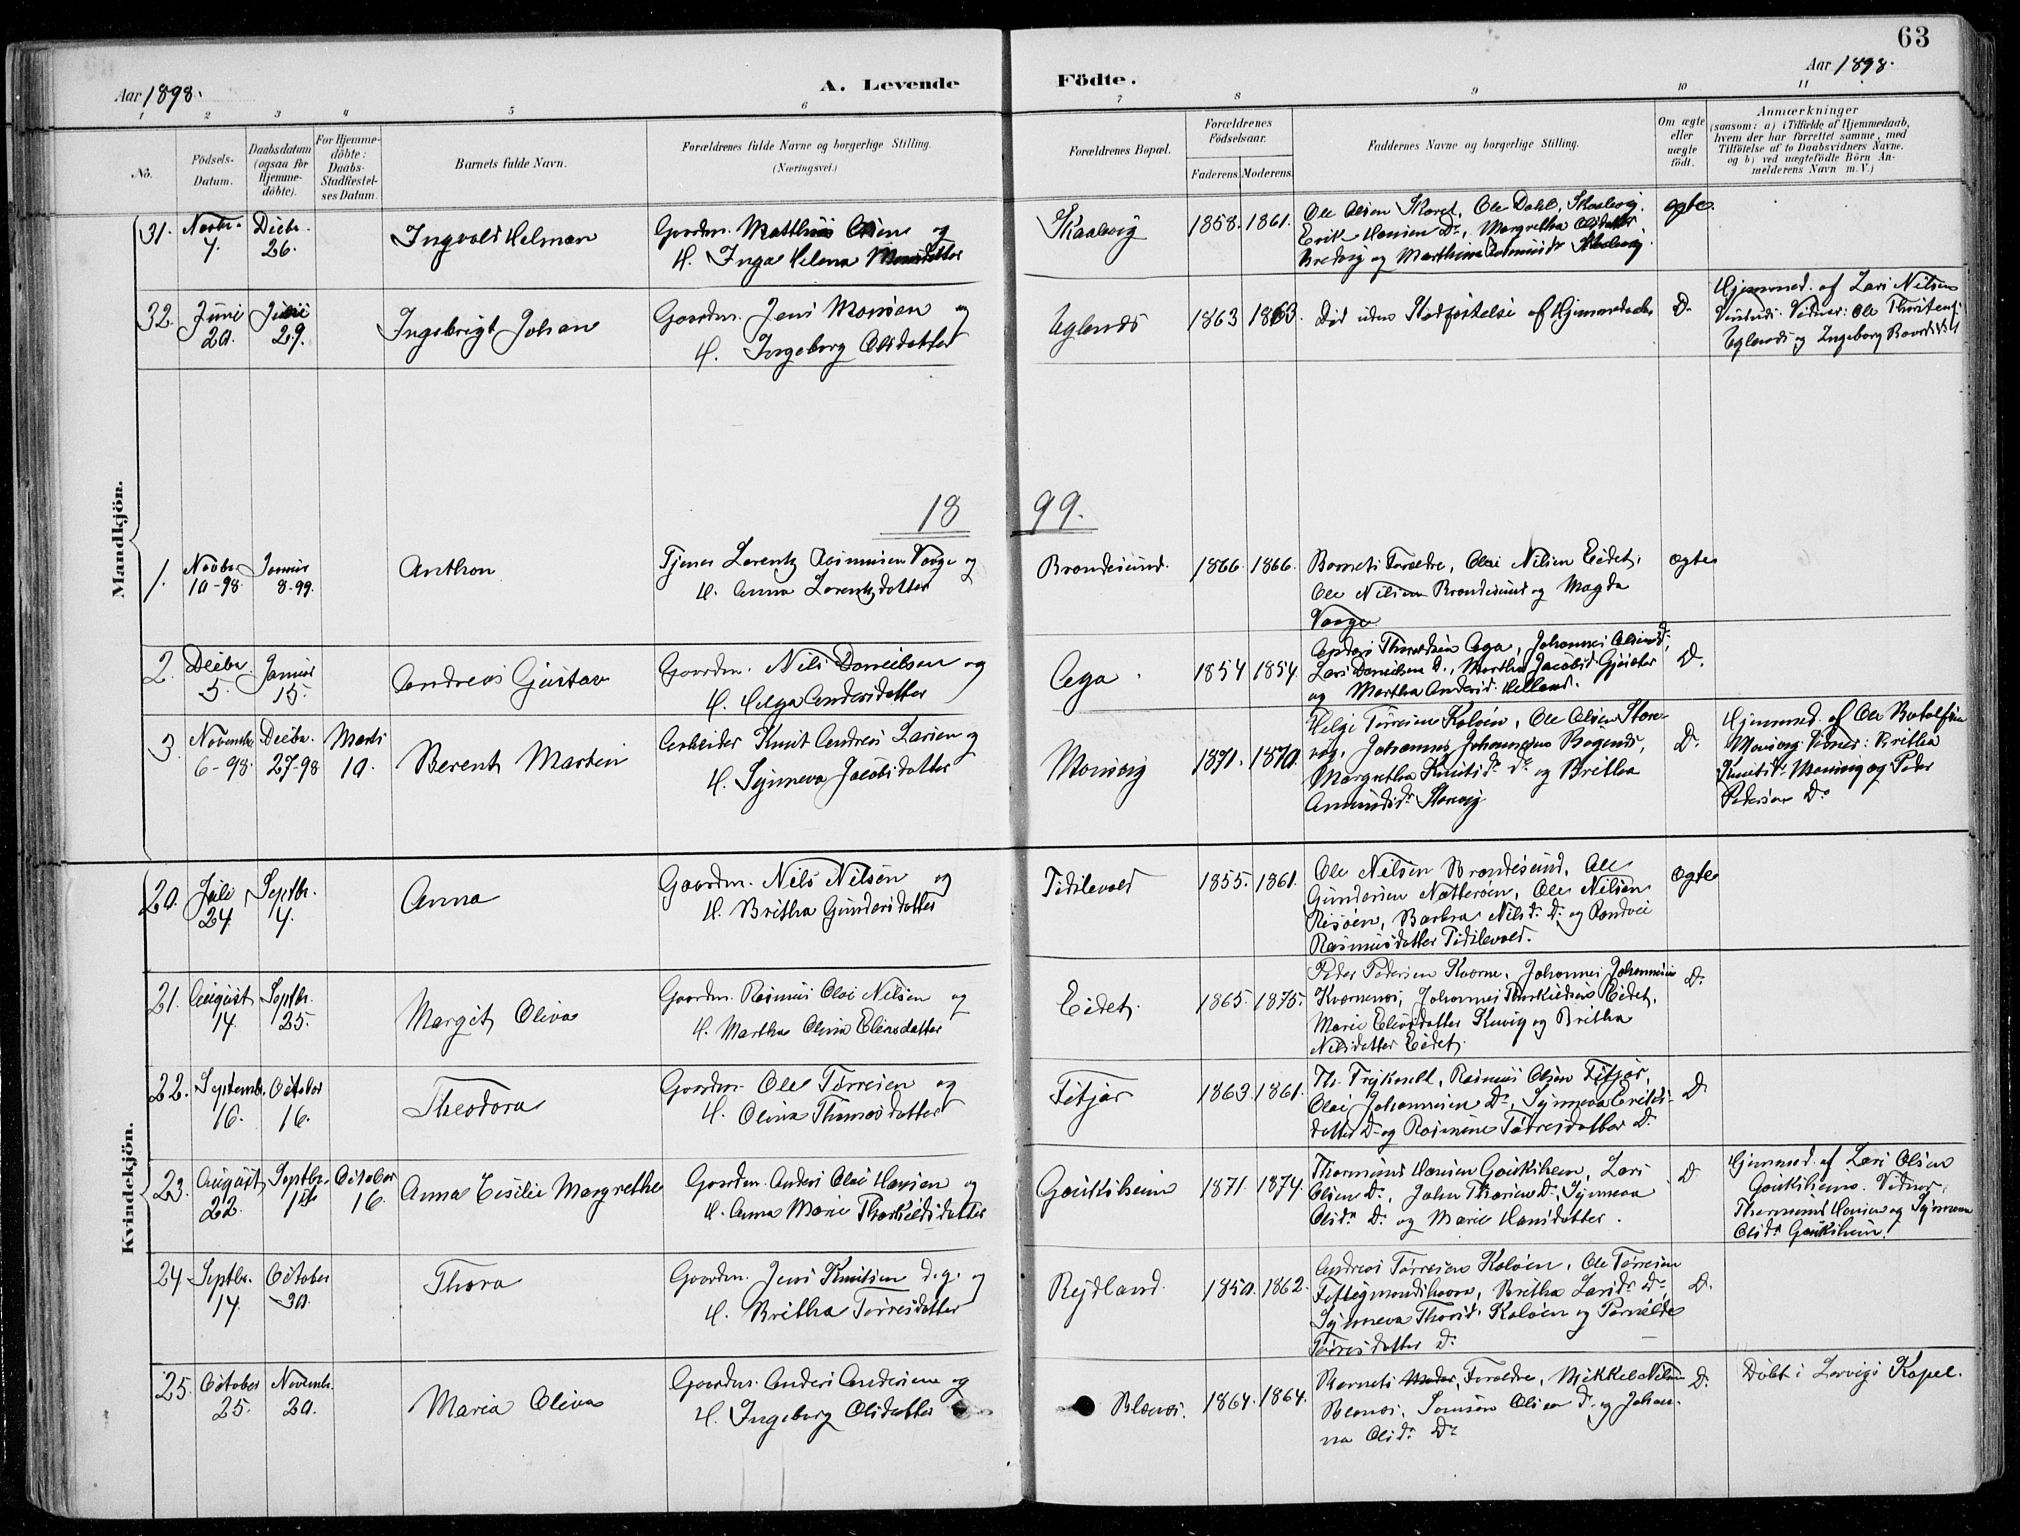 63
Aar 1898.
A. Levende Födte.
Aar 1898.
1 2 3 4 5 6 7 8 9 10 11
No.
Födsels-
Datum.
Daabsdatum
(ogsaa for
Hjemme-
döbte).
For Hjemme-
döbte:
Daabs-
Stadfæstel-
ses Datum.
Barnets fulde Navn.
Forældrenes fulde Navne og borgerlige Stilling.
(Næringsvei.)
Forældrenes Bopæl.
Forældrenes
Födselsaar.
Faderens. Moderens.
Faddernes Navne og borgerlige Stilling.
Om ægte
eller
uægte
födt.
Anmærkninger
(saasom: a) i Tilfælde af Hjemmedaab,
hvem der har forrettet samme, med
Tilföielse af to Daabsvidners Navne.
og b) ved uægtefödte Börn An-
melderens Navn m. V.)
Mandkjön.
31. Novbr. 7. Decbr. 26.
Ingvald Helman
Gaardm. Matthias Olsen og
H. Inga Helena
1858. 1861.
ægte.
32. Juni 20. 29.
Ingebrigt Johan
Gaardm. Jens Monsen og
H. Ingeborg Olsdatter
Eglands
1863 1863.
Død uden Stadfæstelse af Hjemmedaab
Do
Hjemmed. af Lars Nilsen
Eglands og Ingeborg
1899.
1. Novbr. 10-98. Januar 8-99.
Anthon
Tjener Lorentz Rasmussen Vaage og
H. Anna Lorentzdatter
Brandesund.
1866. 1866.
Barnets Forældre, Olai Nilsen Eidet,
Ole Nilsen Brandesund og Magda
Vaage.
ægte
2. Decbr. 5. Januar 15.
Andreas Gustav
Gaardm. Nils Danielsen og
H. Helga Andersdatter
Aga.
1854 1854.
Lars Danielsen Do., Martha Jacobsd.
og Martha Andersd. Helland.
Do.
3. Novembr. 6-98. Decbr. 27-98 Marts 10.
Berent Martin
Arbeider Knut Andreas Larsen og
H. Synneva Jacobsdatter
Monsvig
1871. 1870.
Helge Tørresen Koløen, Ole Olsen Store-
vig, Johannes Johannesen
Margretha Knutsdr. Do og Britha
Amundsdr. Storvig
Do.
Hjemmed. af Ole Botolfsen
Monsvig. Vidner: Britha
Knutsdr. Monsvig og Peder
Pedersen Do
Kvindekjön.
20. Juli 24. Septbr. 4.
Anna
Gaardm. Nils Nilsen og
H. Britha Gundersdatter
Tidilevold
1855. 1861.
Ole Nilsen Brandesund, Ole
Gundersen Natterøen, Ole Nilsen
Risøen, Barbra Nilsdr. Do. og Randvei
Rasmusdatter Tidilevold.
ægte
21. August 14. Septbr. 25.
Margit Oliva
Gaardm. Rasmus Olai Nilsen og
H. Martha Olina Eliasdatter
Eidet.
1865. 1875.
Peder Pedersen Kværne, Johannes Johannesen
Kværnenes, Johannes Thorkildsen Eidet,
Marie Eliasdatter og Britha
Nilsdatter Eidet.
Do.
22. Septembr. 10. October 16.
Theodora
Gaardm. Ole Tørresen og
H. Olina Thomasdatter
Fitjar
1863 1861.
Th. Trykvelt, Rasmus Olsen Fitjar,
Olai Johannesen Do, Synneva
datter Do og Rasmine Tørresdatter Do.
Do.
23. August 22. Septbr. October 16.
Anna Cesilie Margrethe
Gaardm. Anders Olai Hansen og
H. Anna Marie Thorkildsdatter
Gouksheim
1871. 1874.
Thormund Hansen Gouksheim, Lars
Olsen Do., John Do., Synneva
Olsdr. Do. og Marie Hansdatter.
Do
Hjemmed. af Lars Olsen
Gouksheim. Vidner,
Thormund Hansen og Synneva
Olsdr. Gouksheim.
24. Septbr. 14. October 30.
Thora
Gaardm. Jens Knutsen d.y. og
H. Britha Tørresdatter
Rydland.
1850. 1862.
Andreas Tørresen Koløen, Ole Tørresen
Britha Larsdr. Do.,
Synneva Thorsdr. Koløen og
Tørresdatter Do.
Do.
25. October 25. Novembr. 20.
Maria Oliva
Gaardm. Anders Andersen og
H. Ingeborg Olsdatter
Blænes.
1864. 1864.
Barnets Moder, Forældre, Mikkel Nilsen
Blænes, Samson Olsen Do. og Johan-
na Olsdr. Do
Do.
Døbt i Lervigs Kapel.